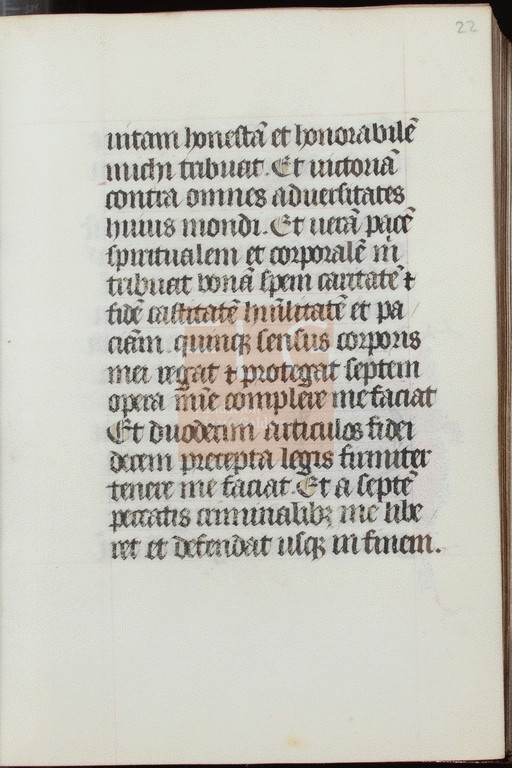 22
uitam honestã et honorabilẽ
michi tribuat. Et uictoriã
contra omnes aduersitates
huius mondi. Et uerã pacẽ
spiritualem et corporalẽ m̃
tribuat bonã spem caritatẽ ⁊
fidẽ castitatẽ humilitatẽ et pa
ciẽm. quinqꝫ sensus corporis
mei regat ⁊ protegat septem
opera mĩe complere me faciat
Et duodecim articulos fidei
decem precepta legis firmiter
tenere me faciat. Et a septẽ
peccatis criminalibꝫ me libe
ret et defendat usqꝫ in finem.